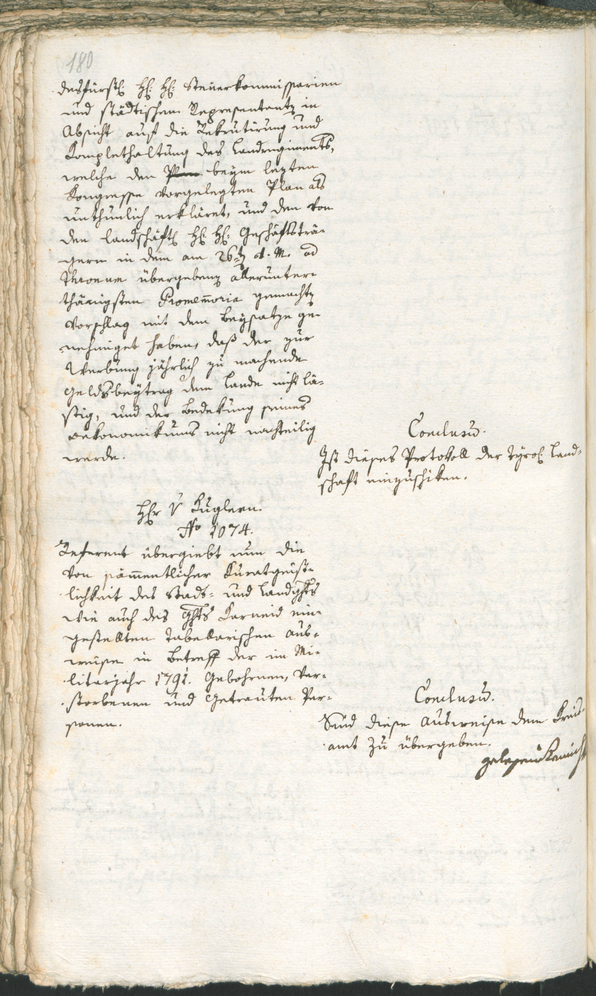 180
desfürstl. H: H: Steuerkommissarien
und städtischen Representantz in
Absicht auf die Rekrutirung und
Complethaltung des Landregiments,
welche den beym lezten
Kongresse vorgelegten Plan als
unthunlich erkläret, und den von
den landschäftl. H: H: Geschäftsträ-
gern in dem am 26t d. M. ad
Thronum übergebenz allerunter-
thänigsten Promemoria gemachtz
Vorschlag mit dem Beysatze ge-
nehmiget haben, daß der zur
Werbung jährlich zu machende
Geldsbeytrag dem Lande nicht lä-
stig, und der Bedekung seines
oekonomikums nicht nachteilig
werde.
Conclusū.
Ist dieses Protokoll der tyrol. Land-
schaft einzuschiken.
Hr. v Kuglern.
No 1074.
Referens übergiebt nun die
von sämmentlicher Curatgeist-
lichkeit des Stadt- und Landghts
wie auch des Ghts Karneid ein-
gestellten tabellarischen Aus-
weise in Betreff der im Mi-
litarjahr 1791. Gebohrnen, Ver-
storbenen und Getrauten Per-
sonen.
Conclusū.
Sind diese Ausweise dem Kreis-
amt zu übergeben.